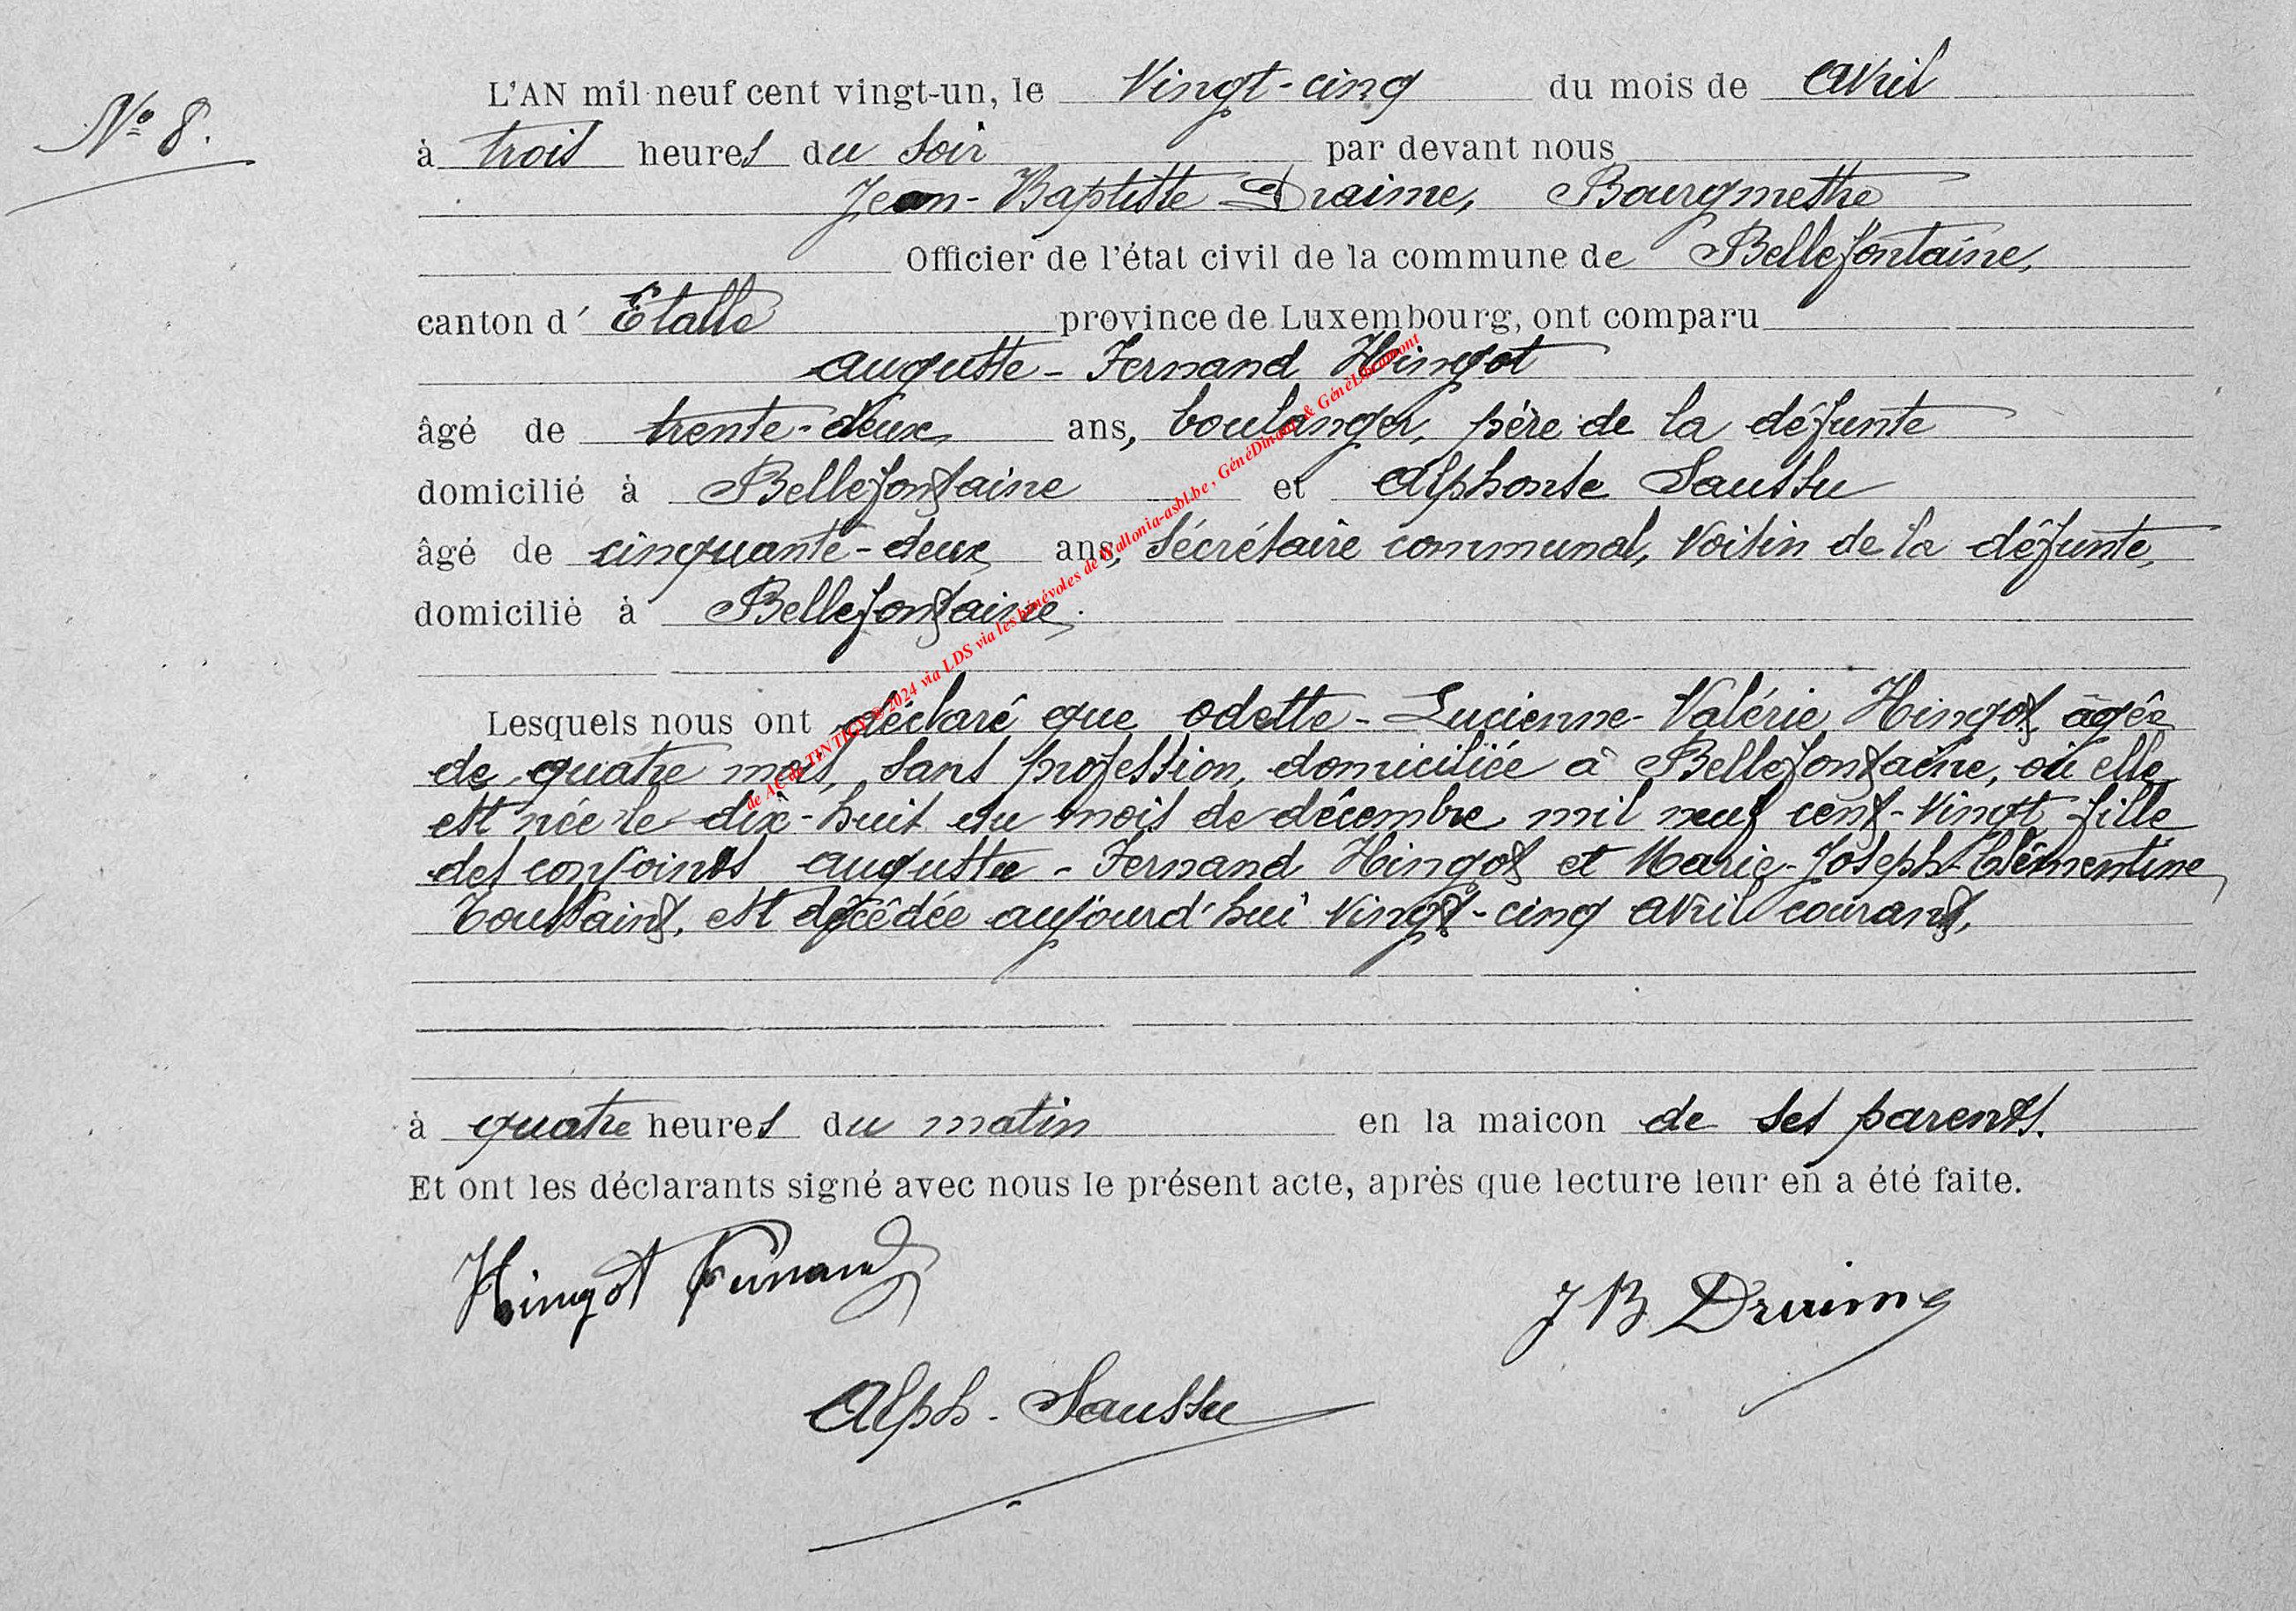 N° 8.
L'AN mil neuf cent vingt-un, le Vingt-cinq du mois de Avril
à trois heures du soir par devant nous
Jean-Baptiste Draime, Bourgmestre
Officier de l'état civil de la commune de Bellefontaine,
canton d' Etalle province de Luxembourg, ont comparu
Auguste-Fernand Hingot
âgé de trente-deux ans, boulanger, père de la défunte
domicilié à Bellefontaine et Alphonse Saussu
âgé de cinquante-deux ans, sécrétaire communal, Voisin de la défunte,
domicilié à Bellefontaine.
Lesquels nous ont déclaré que Odette-Lucienne-Valérie Hingot âgée
de quatre mois, sans profession, domiciliée à Bellefontaine, où elle
est née le dix-huit du mois de décembre mil neuf cent-vingt fille
des conjoints Auguste-Fernand Hingot et Marie-Joseph-Clémentine
Toussaint, est décédée aujourd'hui vingt-cinq avril courant,
à quatre heures du matin en la maicon de ses parents.
Et ont les déclarants signé avec nous le présent acte, après que lecture leur en a été faite.
Hingot Fernand
J B Draime
Alph. Saussu
de AC de TINTIGY © 2024 via LDS via les bénévoles de Wallonia-asbl.be , GénéDinant & GénéLibramont